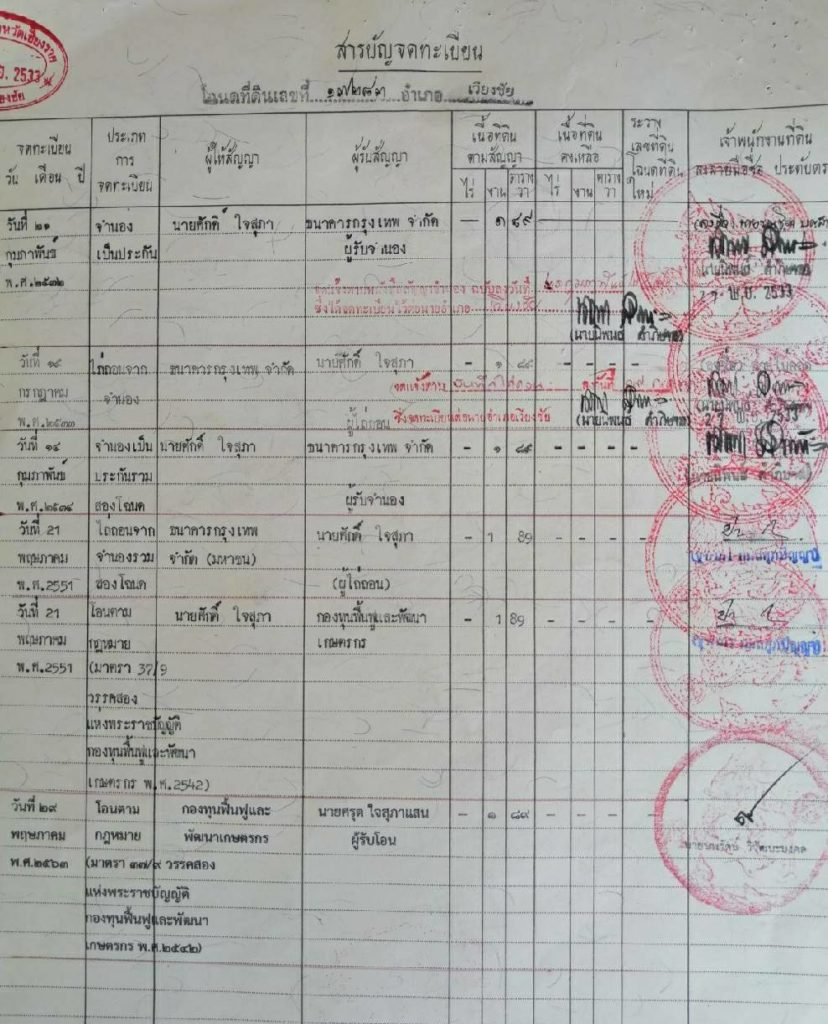 สารบัญจดทะเบียน
โฉนดที่ดินเลขที่ ๑๗๒๘๓ อำเภอ เวียงชัย
จดทะเบียน
วัน เดือน ปี
ประเภท
การ
จดทะเบียน
ผู้ให้สัญญา
ผู้รับสัญญา
เนื้อที่ดิน
ตามสัญญา
ไร่ งาน ตาราง
วา
เนื้อที่ดิน
คงเหลือ
ไร่ งาน ตาราง
วา
ระวาง
เลขที่ดิน
โฉนดที่ดิน
ใหม่
เจ้าพนักงานที่ดิน
ลงลายมือชื่อ ประทับตรา
2533
วันที่ ๒๑ จำนอง นายศักดิ์ ใจสุภา ธนาคารกรุงเทพ จำกัด — ๑ ๘๙
กุมภาพันธ์ เป็นประกัน ผู้รับจำนอง
พ.ศ.๒๕๓๒
พ.ย. 2533
(นายนิพนธ์
วันที่ ๑๙ ไถ่ถอนจาก ธนาคารกรุงเทพ จำกัด นายศักดิ์ ใจสุภา - ๑ ๘๙ - - - -
กรกฎาคม จำนอง
พ.ศ.๒๕๓๓ ผู้ไถ่ถอน ซึ่งจดทะเบียนต่อนายอำเภอเวียงชัย (นายนิพนธ์
วันที่ ๑๔ จำนองเป็น นายศักดิ์ ใจสุภา ธนาคารกรุงเทพ จำกัด - ๑ ๘๙ - - - -
กุมภาพันธ์ ประกันรวม
พ.ศ.๒๕๓๔ สองโฉนด ผู้รับจำนอง
วันที่ 21 ไถ่ถอนจาก ธนาคารกรุงเทพ นายศักดิ์ ใจสุภา - 1 89 - - - -
พฤษภาคม จำนองรวม จำกัด (มหาชน)
พ.ศ.2551 สองโฉนด (ผู้ไถ่ถอน)
วันที่ 21 โอนตาม นายศักดิ์ ใจสุภา กองทุนฟื้นฟูและพัฒนา - 1 89 - - - -
พฤษภาคม กฎหมาย เกษตรกร
พ.ศ.2551 (มาตรา 37/9
วรรคสอง
แห่งพระราชบัญญัติ
กองทุนฟื้นฟูและพัฒนา
เกษตรกร พ.ศ.2542)
วันที่ ๒๙ โอนตาม กองทุนฟื้นฟูและ นายศรุต ใจสุภาแสน - ๑ ๘๙ - - - -
พฤษภาคม กฎหมาย พัฒนาเกษตรกร ผู้รับโอน
พ.ศ.๒๕๖๓ (มาตรา ๓๗/๙ วรรคสอง
แห่งพระราชบัญญัติ
กองทุนฟื้นฟูและพัฒนา
เกษตรกร พ.ศ.๒๕๔๒)